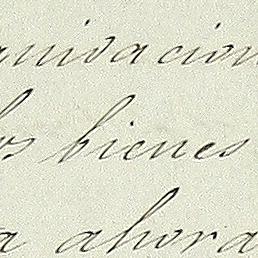 anizacion
los bienes
a ahora